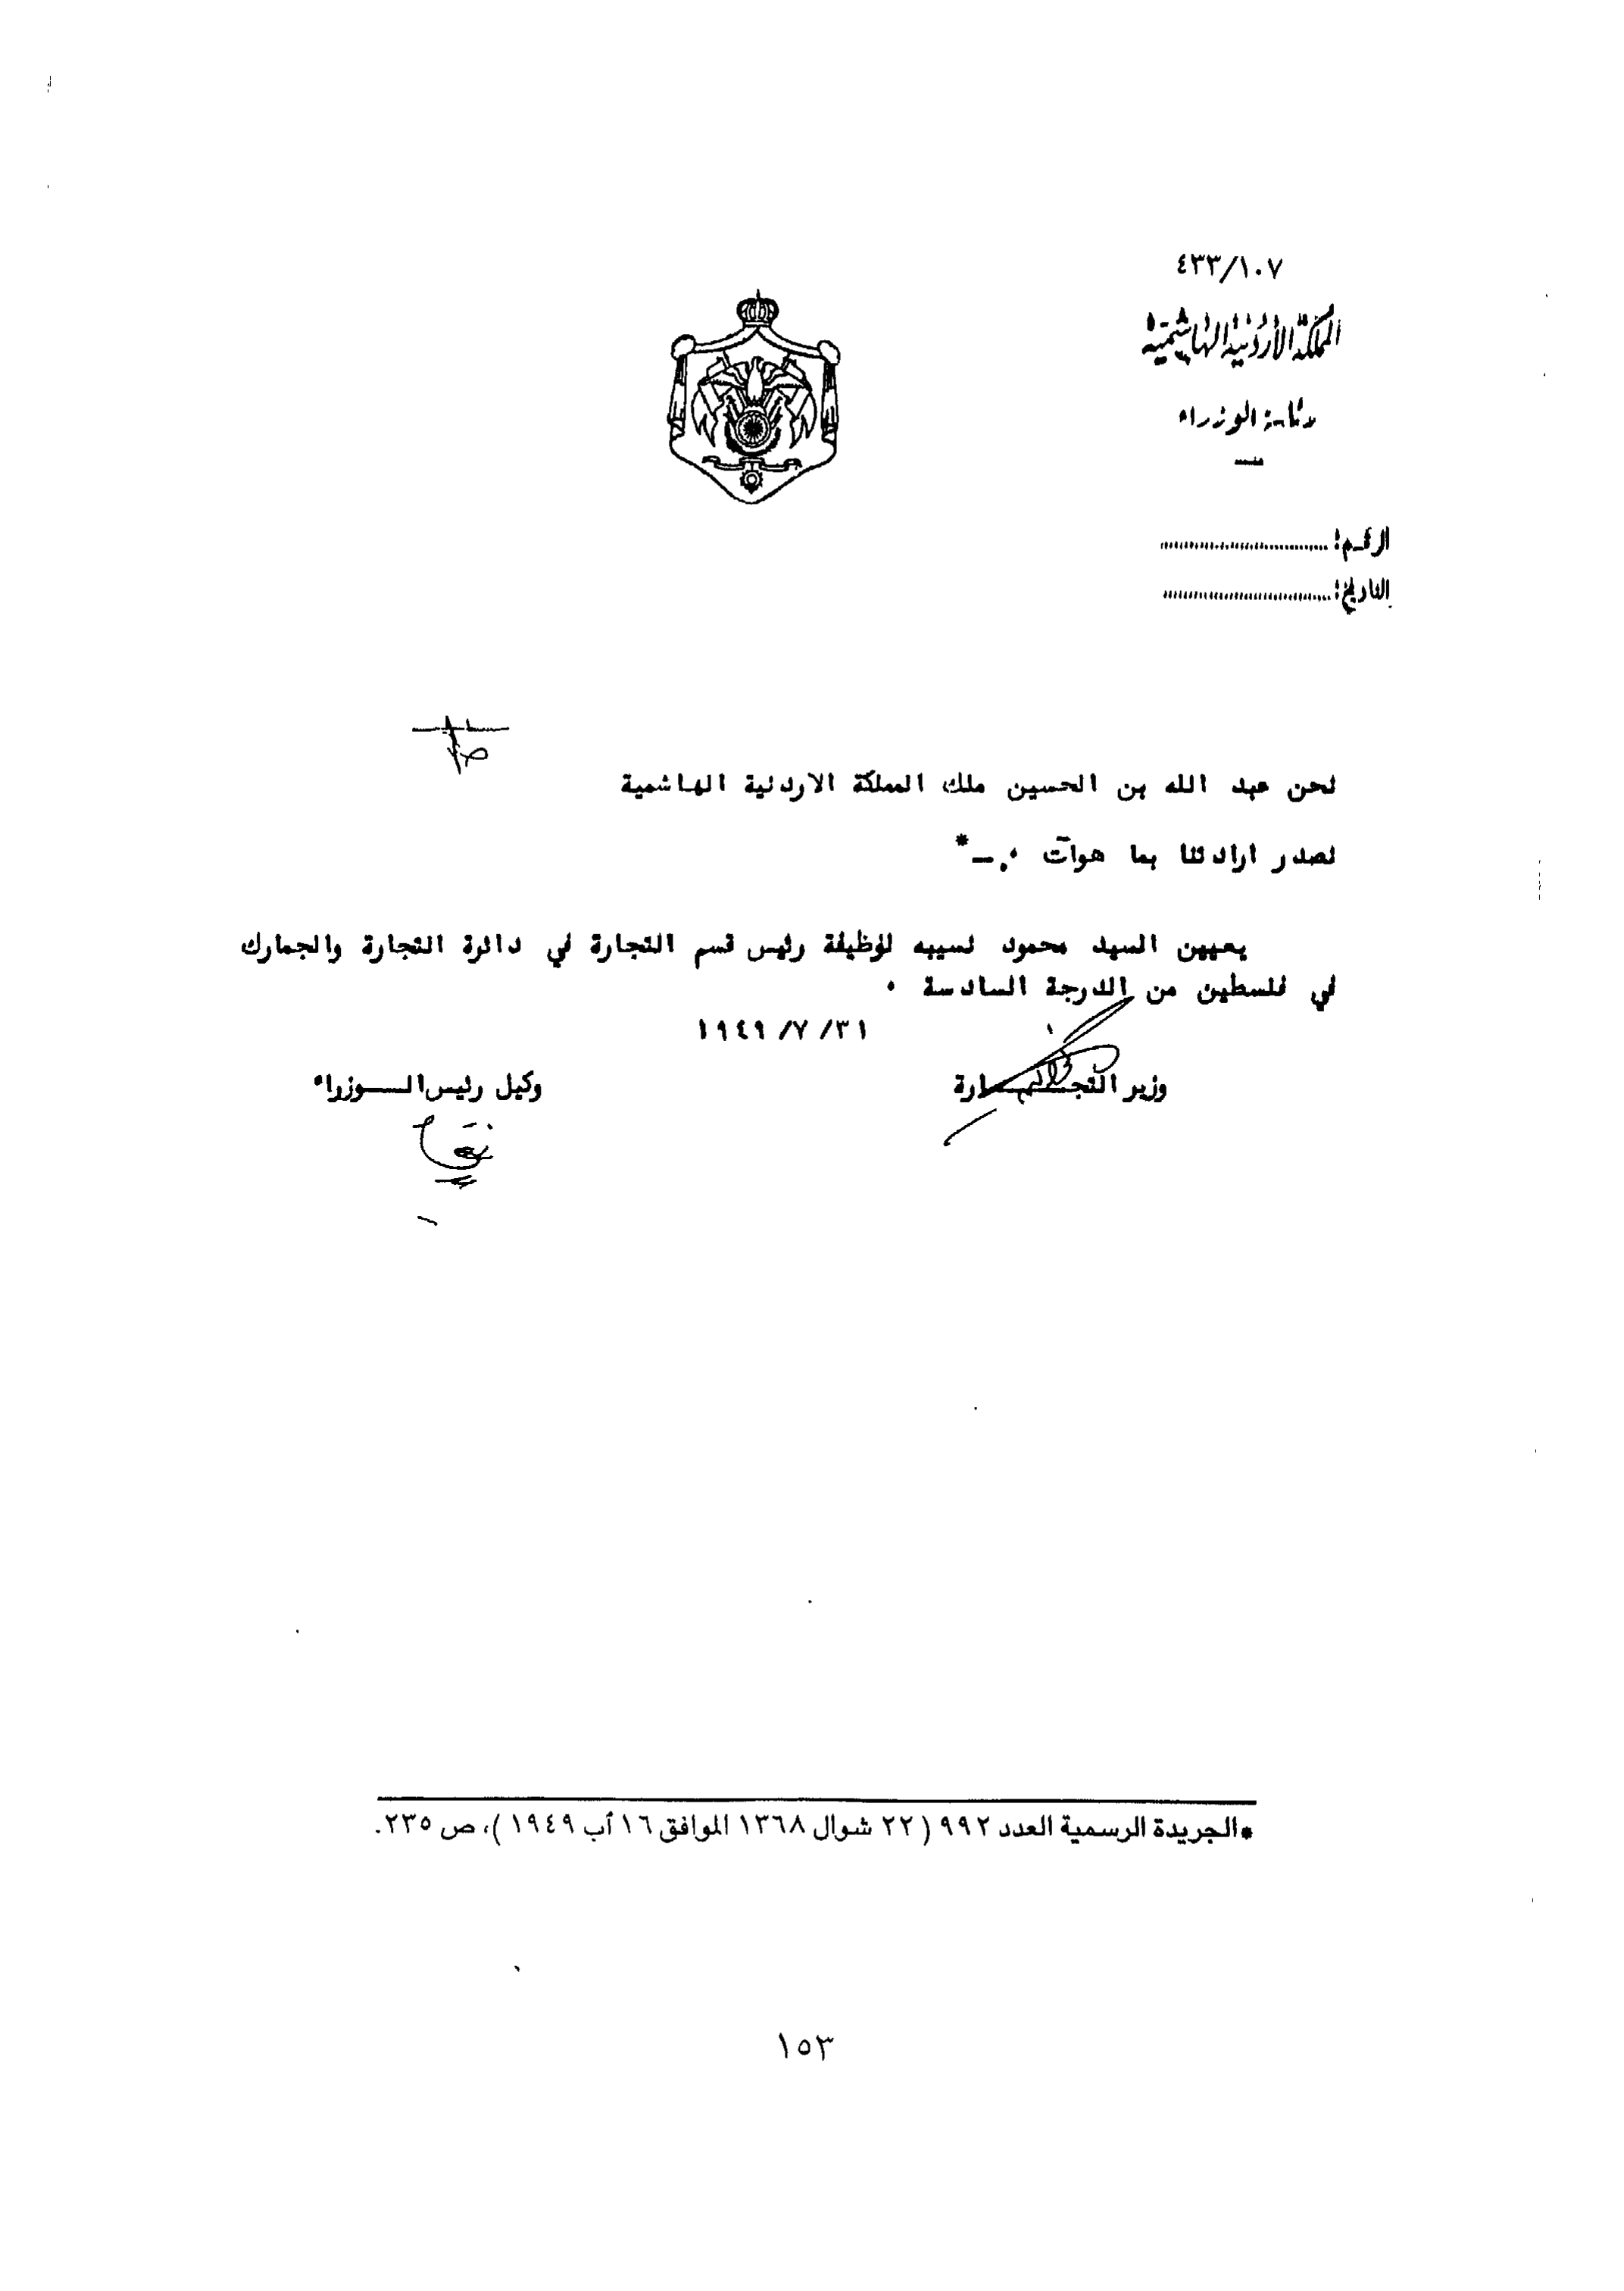 ٤٣٣/١٠٧
المملكة الأردنية الهاشمية
رئاسة الوزراء
الرقم:
التاريخ:
نحن عبد الله بن الحسين ملك المملكة الاردنية الهاشمية
نصدر ارادتنا بما هوآت ٠ـ*
يعيين السيد محمود نسيبه لوظيفة رئيس قسم التجارة في دائرة التجارة والجمارك
في فلسطين من الدرجة السادسة ٠
١٩٤٩/٧/٣١
وزير التجـــارة
وكيل رئيس الـــوزراء
*الجريدة الرسمية العدد ٩٩٢ ( ٢٢ شوال ١٣٦٨ الموافق ١٦ آب ١٩٤٩ )، ص ٢٣٥.
١٥٣